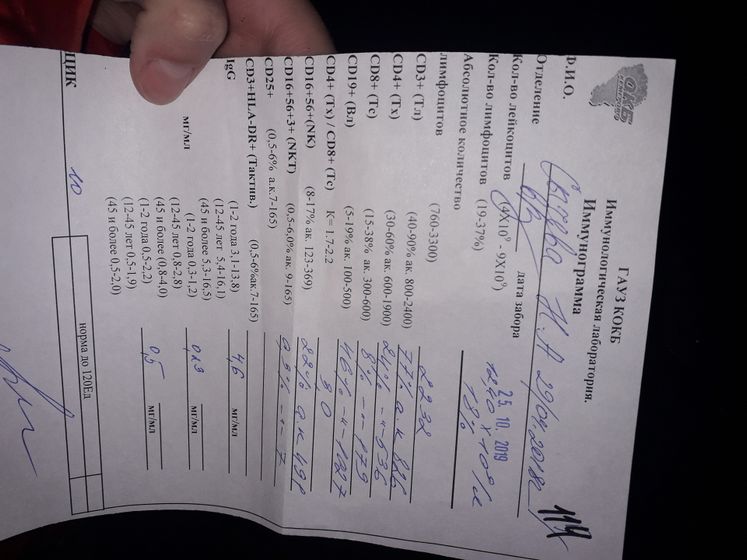 ОКБ
ГАУЗ КОКБ
Иммунологическая лаборатория.
Иммунограмма
114
Ф.И.О. Н.А 29/04.2018г
Отделение дата забора 25.10.2019
Кол-во лейкоцитов (4X10⁹ - 9X10⁹) 10⁹/л
Кол-во лимфоцитов (19-37%) 18%
Абсолютное количество
лимфоцитов (760-3300) 2232
CD3+ (Тл) (40-90% ак. 800-2400) ак
CD4+ (Тх) (30-60% ак. 600-1900)
CD8+ (Тс) (15-38% ак. 300-600) 8% -"- 179
CD19+ (Вл) (5-19% ак. 100-500) 46% -"- 1027
CD4+ (Тх) / CD8+ (Тс) К= 1.7-2.2 3.0
CD16+56+(NK) (8-17% ак. 123-369) 22% ак 491
CD16+56+3+ (NKT) (0,5-6,0% ак. 9-165) 0,3% -"- 7
CD25+ (0,5-6% а.к.7-165)
CD3+HLA-DR+ (Тактив.) (0,5-6%ак.7-165)
IgG (1-2 года 3,1-13,8)
(12-45 лет 5,4-16,1) 4,6 мг/мл
(45 и более 5,3-16,5)
(1-2 года 0,3-1,2)
мг/мл (12-45 лет 0,8-2,8) 0,13 мг/мл
(45 и более (0,8-4,0)
(1-2 года 0,5-2,2)
(12-45 лет 0,5-1,9) 0,5 мг/мл
(45 и более 0,5-2,0)
ЦИК 10 норма до 120Ед